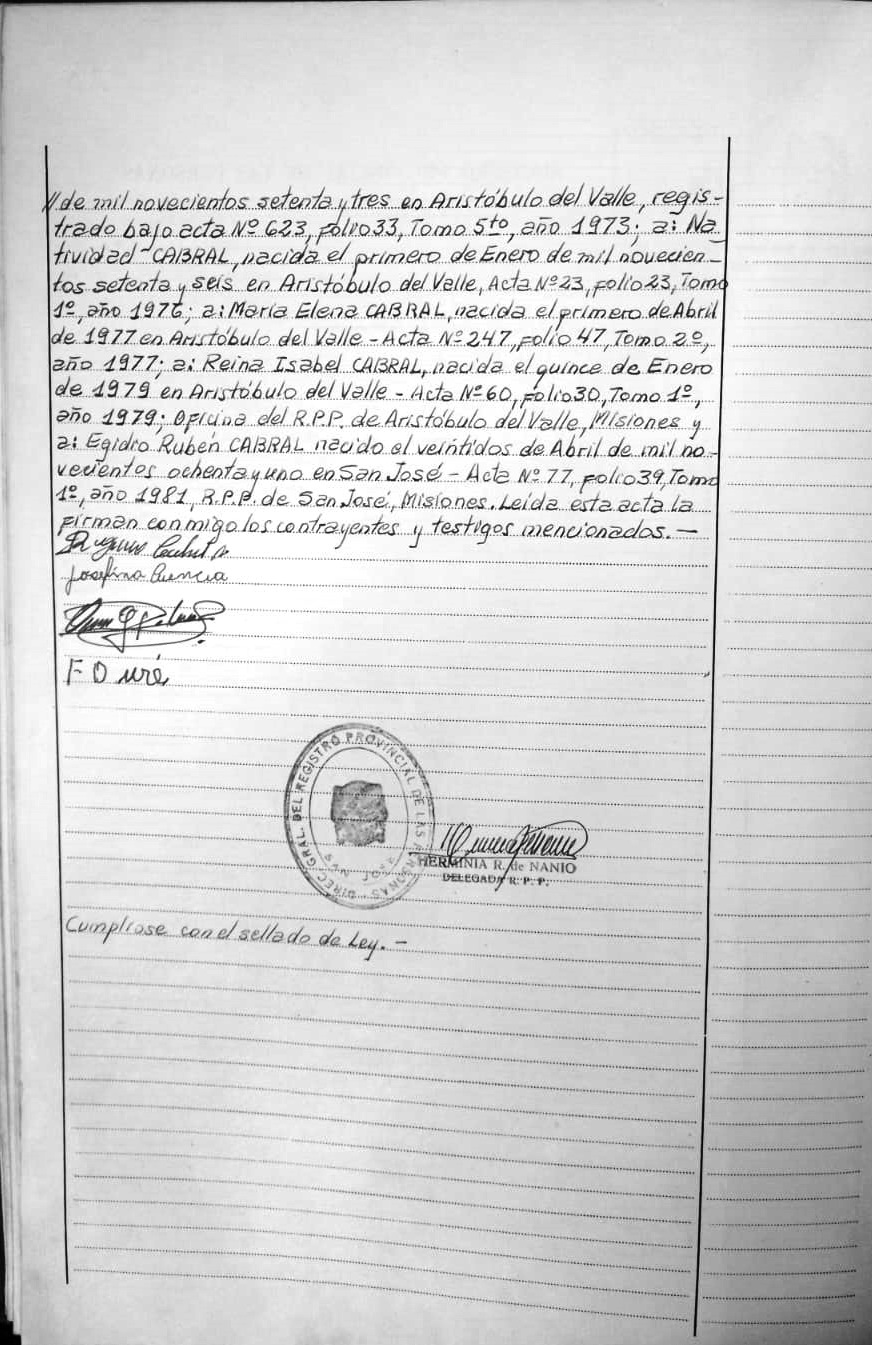 // de mil novecientos setenta y tres en Aristóbulo del Valle, regis-
trado bajo acta Nº 623, folio 33, Tomo 5to, año 1973; a: Na
tividad CABRAL, nacida el primero de Enero de mil novecien-
tos setenta y seis en Aristóbulo del Valle, Acta Nº 23, folio 23, Tomo
1º, año 1976; a: María Elena CABRAL, nacida el primero de Abril
de 1977 en Aristóbulo del Valle - Acta Nº 247, folio 47, Tomo 2º,
año 1977; a: Reina Isabel CABRAL, nacida el quince de Enero
de 1979 en Aristóbulo del Valle - Acta Nº 60, folio 30, Tomo 1º,
año 1979; Oficina del R.P.P. de Aristóbulo del Valle, Misiones y
a: Egidio Rubén CABRAL nacido el veintidos de Abril de mil no-
vecientos ochenta y uno en San José - Acta Nº 77, folio 39, Tomo
1º, año 1981, R.P.P. de San José, Misiones. Leída esta acta la
firman conmigo los contrayentes y testigos mencionados. -
Josefina
F O
DIREC. GRAL. DEL REGISTRO PROVINCIAL DE LAS PERSONAS
SAN JOSE
HERMINIA R. de NANIO
DELEGADA R. P. P.
Cumpliose con el sellado de Ley. -